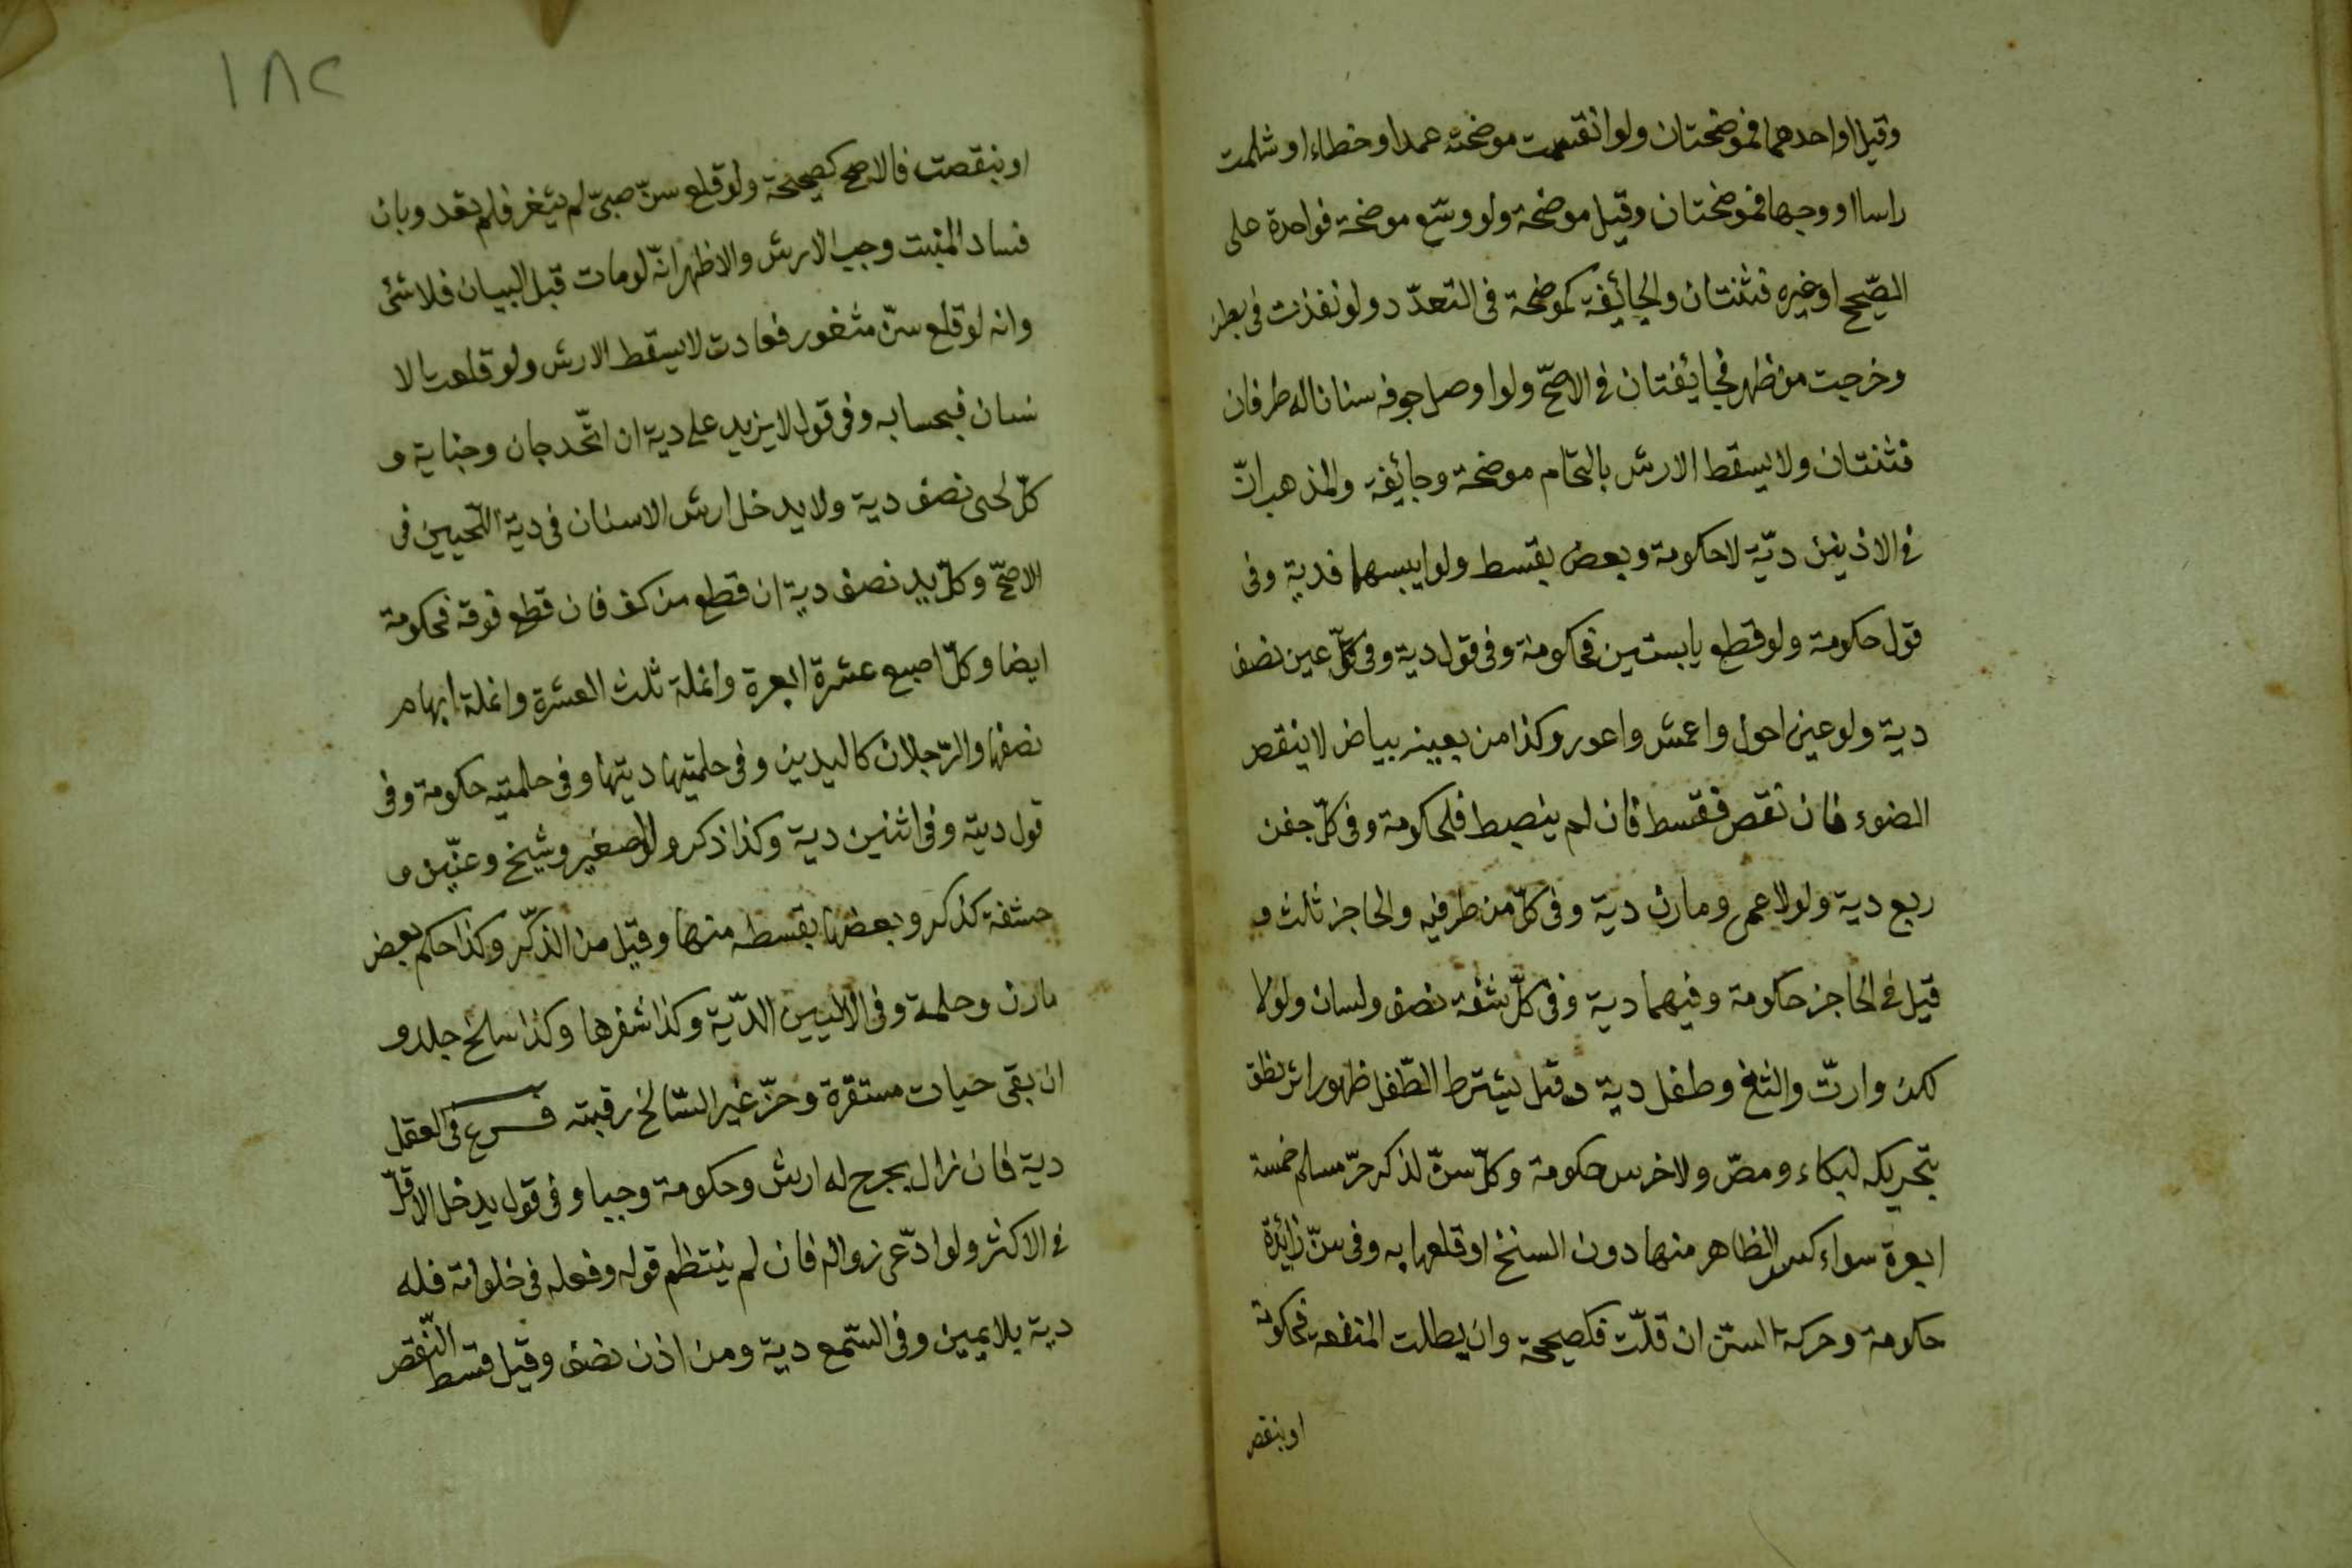 وقيل او احدهما فموضحتان ولو انقسمت موضحته عمدا او خطاء او شملت
راسا او وجها فموضحتان وقيل موضحة ولو وسّع موضحة فواحدة على
الصّحيح او غيره فثنتان والجائيفة كموضحة فى التعدّد ولو نفذت فى بطن
وخرجت من ظهر فجائيفتان فى الاصحّ ولو اوصل جوفه سنانا له طرفان
فثنتان ولا يسقط الارش بالتحام موضحة وجائيفة والمذهب انّ
فى الاذينين ديّة لا حكومة وبعض بقسط ولو ايبسهما فدية وفى
قول حكومة ولو قطع يابستين فحكومة وفى قول دية وفى كلّ عين نصف
دية ولو عين احول واعمش واعور وكذا من بعينه بياض لا ينقص
الضوء فان نقص فقسط فان لم ينضبط فلحكومة وفى كلّ جفن
ربع دية ولو لاعمى ومارن دية وفى كلّ من طرفيه والحاجز ثلث و
قيل فى الحاجز حكومة وفيهما دية وفى كلّ شفة نصف ولسان ولو لا
لكن وارتّ والثغ وطفل دية وقيل يشترط الطّفل ظهور اثر نطق
بتحريكه لبكاء ومصّ ولاخرس حكومة وكلّ سنّ لذكر حرّ مسلم خمسة
ابعرة سواء كسر الظاهر منها دون السنخ او قلعها به وفى سنّ زائدة
حكومة وحركة السّن ان قلّت فكصيحة وان بطلت المنفعة فحكومة
او نقص
١٨٢
او نقصت فالاصح كصيحة ولو قلع سنّ صبىّ لم يثغر فلم تعد وبان
فساد المنبت وجب الارش والاظهر انّه لو مات قبل البيان فلا شئ
وانه لو قلع سنّ مثغور فعادت لا يسقط الارش ولو قلعت الا
سنان فبحسابه وفى قول لا يزيد على دية ان اتّحد جان وجناية و
كلّ لحى نصف دية ولا يدخل ارش الاسنان فى ديّة اللّحيين فى
الاصحّ وكلّ يد نصف دية ان قطع من كف فان قطع فوقه فحكومة
ايضا وكلّ اصبع عشرة ابعرة وانملة ثلث العشرة وانملة ابهام
نصفها والرّجلان كاليدين وفى حلمتيها ديتها وفى حلمتيه حكومة وفى
قول ديته وفى اثنين دية وكذا ذكر ولو لصغير وشيخ وعنّين و
حشفة كذكر وبعضها بقسطه منها وقيل من الذّكر وكذا حكم بعض
مارن وحلمة وفى الاليين الدّية وكذا شفرها وكذا سلخ جلد و
ان بقى حيات مستقرة وحزّ غير السّالخ رقبته فــرع فى العقل
دية فان زال بجرح له ارش وحكومة وجبا وفى قول يدخل الاقلّ
فى الاكثر ولو ادّعى زواله فان لم ينتظم قوله وفعله فى خلواته فله
دية بلا يمين وفى السّمع دية ومن اذن نصف وقيل قسط النّقص